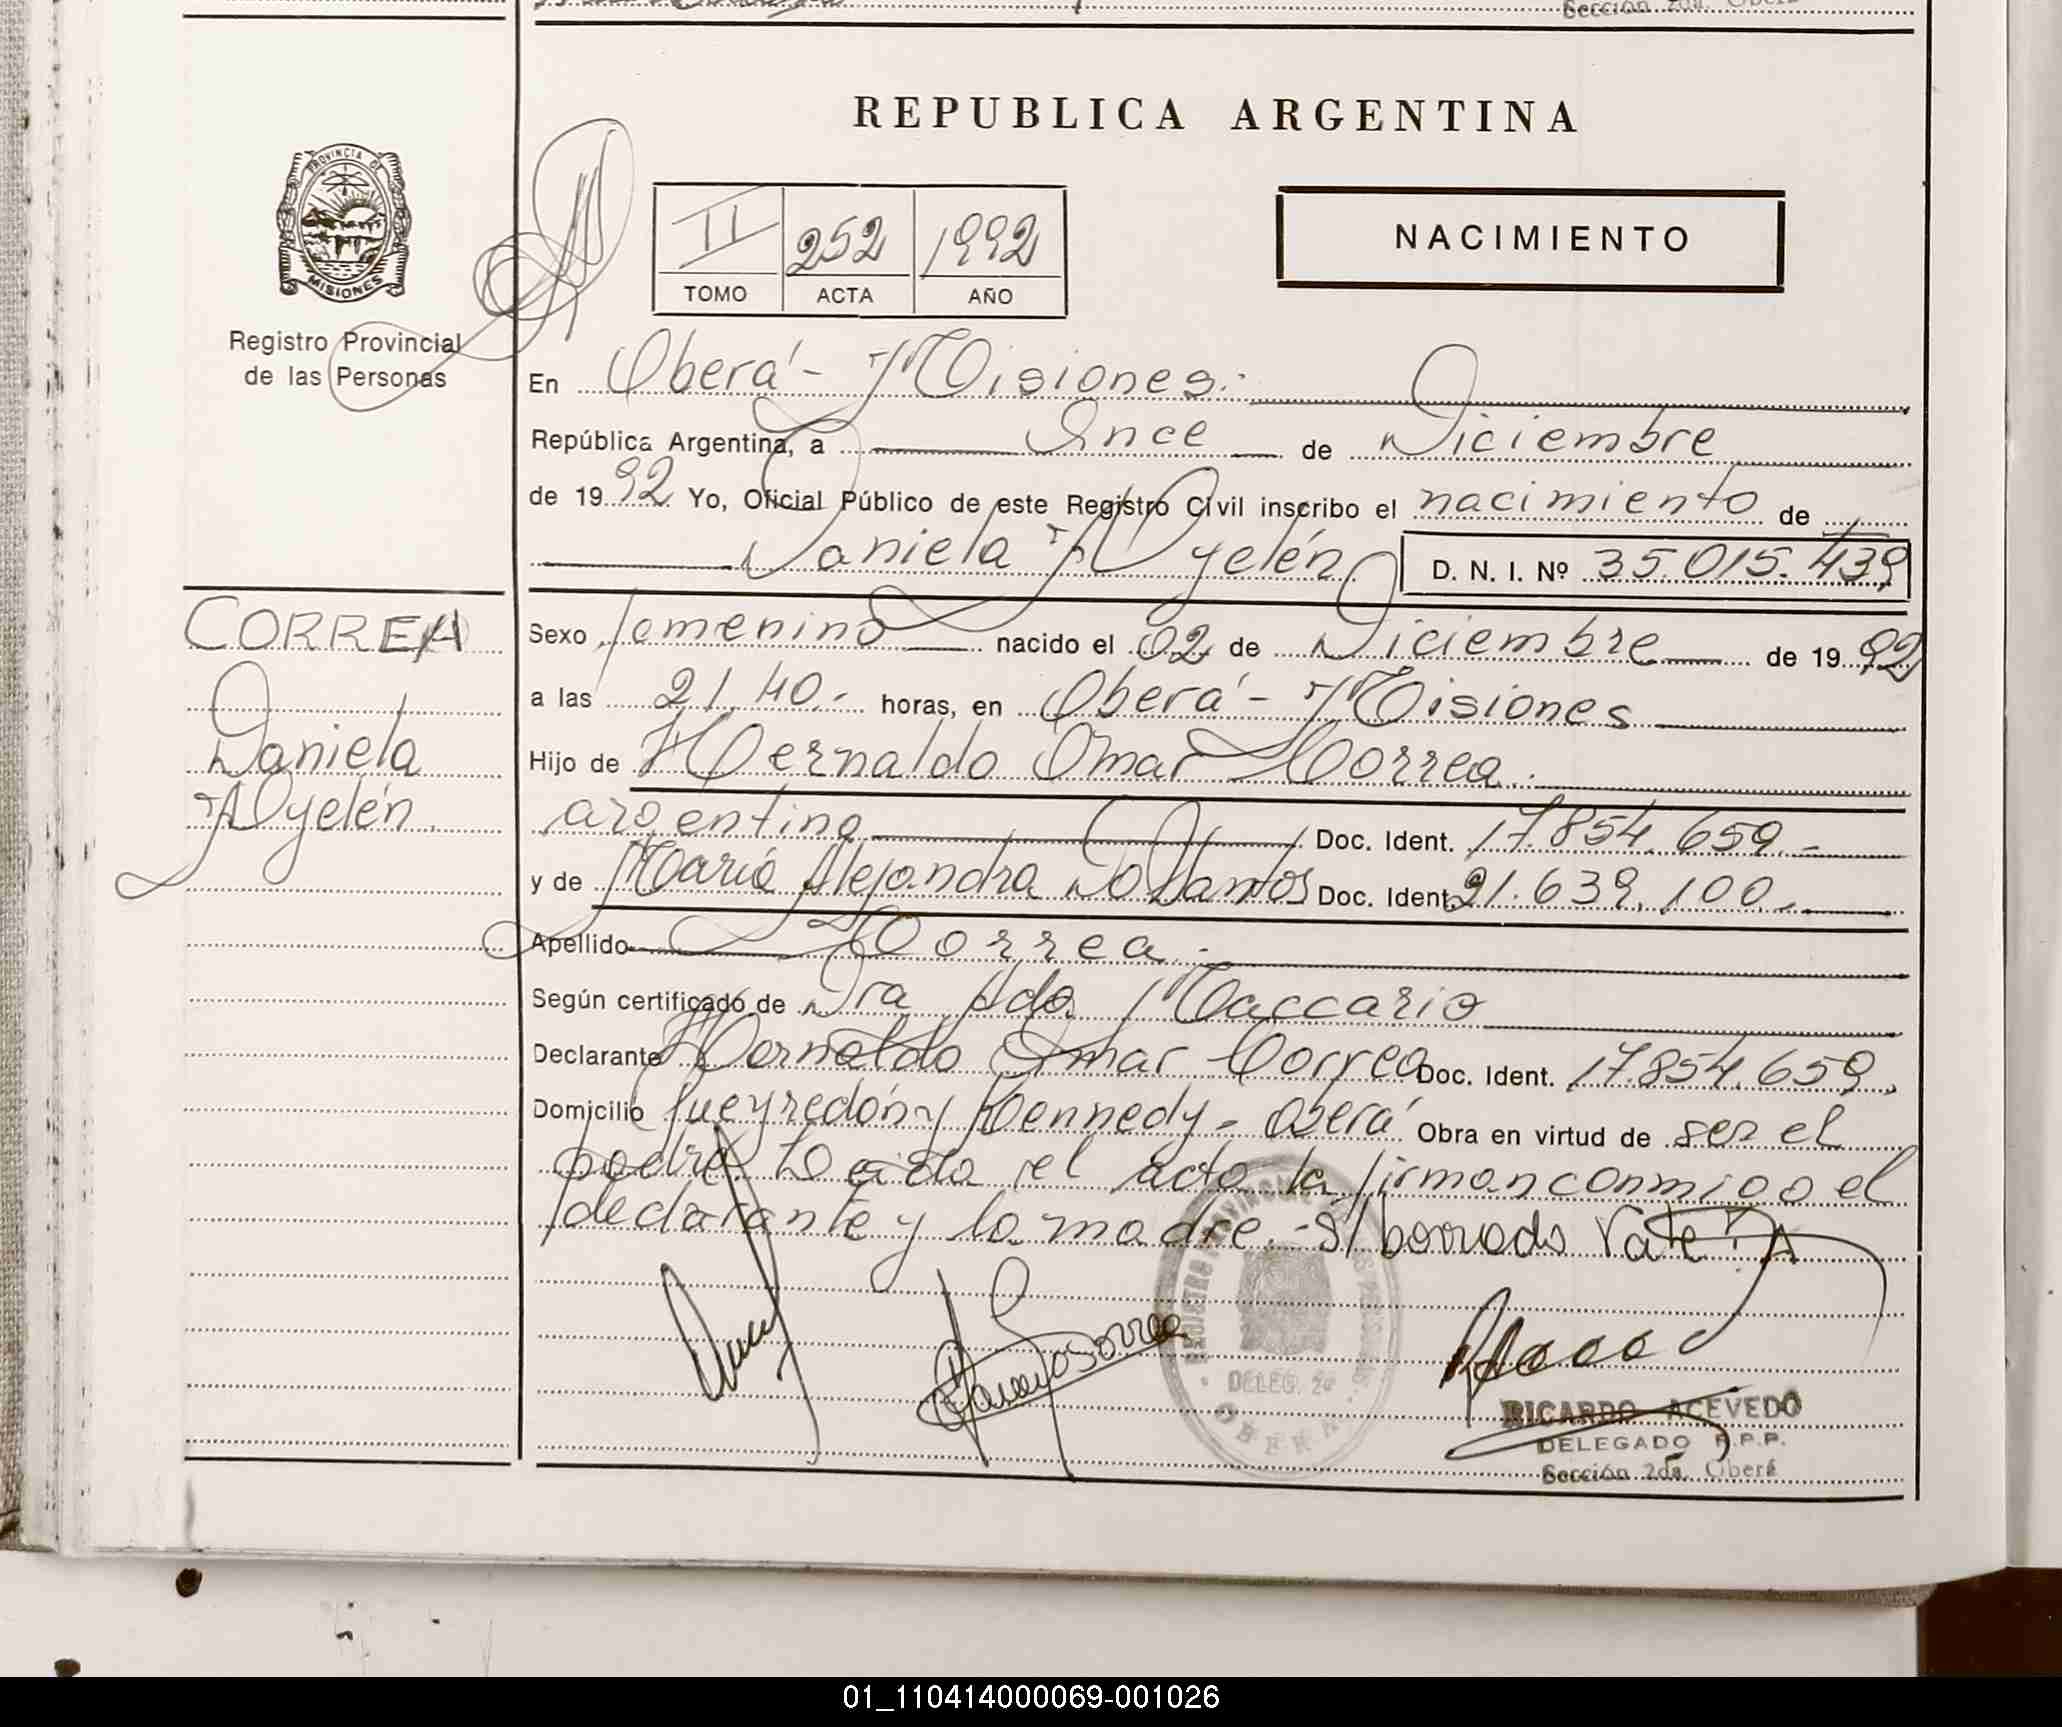 Sección 2da. Oberá
REPUBLICA ARGENTINA
PROVINCIA DE
MISIONES
Registro Provincial
de las Personas
II 252 1992
TOMO ACTA AÑO
NACIMIENTO
En Oberá - Misiones.-
República Argentina, a Once de Diciembre
de 1992 Yo, Oficial Público de este Registro Civil inscribo el nacimiento de
Daniela Ayelén D. N. I. Nº 35.015.439
CORREA
Daniela
Ayelén.
Sexo femenino nacido el 02 de Diciembre de 1992
a las 21.40.- horas, en Oberá - Misiones
Hijo de Hernaldo Omar Correa.
argentino Doc. Ident. 17.854.659.-
y de María Alejandra Do Santos Doc. Ident. 21.639.100.-
Apellido Correa.
Según certificado de Dra Ada Maccario
Declarante Hernaldo Omar Correa Doc. Ident. 17.854.659.
Domicilio Pueyredón y Kennedy - Oberá Obra en virtud de ser el
padre. Leída el acta la firman conmigo el
declarante y la madre.- S/ borrado Vale: A
REGISTRO PROVINCIAL
DELEG. 2ª
OBERA
RICARDO ACEVEDO
DELEGADO R.P.P.
Sección 2da. Oberá
01_110414000069-001026